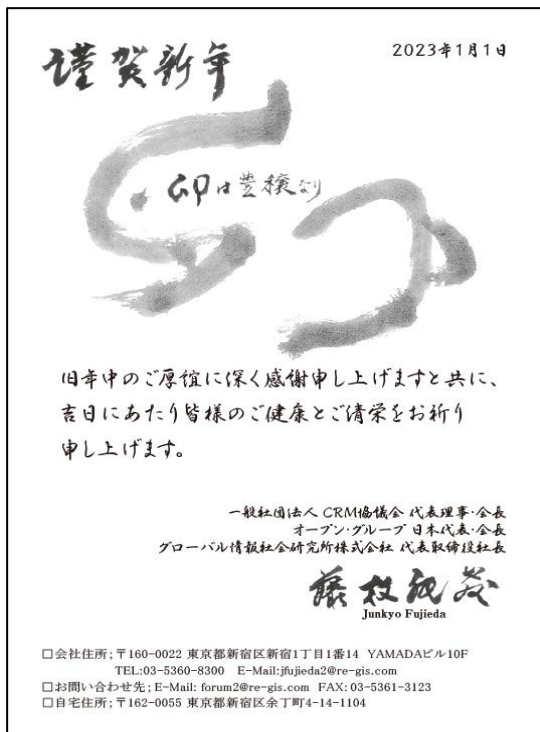 謹賀新年
2023年1月1日
卯は豊穣なり
旧年中のご厚誼に深く感謝申し上げますと共に、
吉日にあたり皆様のご健康とご清栄をお祈り
申し上げます。
一般社団法人 CRM協議会 代表理事・会長
オープン・グループ 日本代表・会長
グローバル情報社会研究所株式会社 代表取締役社長
藤枝純教
Junkyo Fujieda
□会社住所;〒160-0022 東京都新宿区新宿1丁目1番14 YAMADAビル10F
TEL:03-5360-8300 E-Mail:jfujieda2@re-gis.com
□お問い合わせ先; E-Mail: forum2@re-gis.com FAX: 03-5361-3123
□自宅住所;〒162-0055 東京都新宿区余丁町4-14-1104